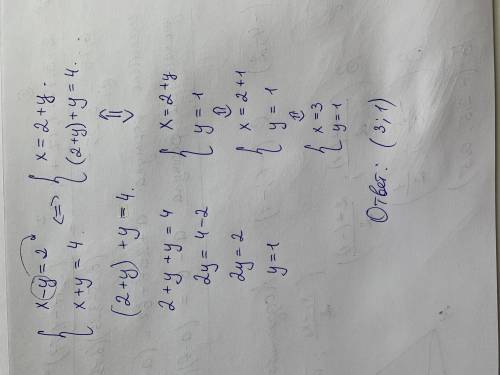 { x - y = 2
x + y = 4. <=> { x = 2 + y.
(2+y) + y = 4.
(2+y) + y = 4.
2 + y + y = 4
2y = 4 - 2
2y = 2
y = 1
⇕
{ x = 2 + y
y = 1
⇕
{ x = 2 + 1
y = 1
⇕
{ x = 3
y = 1
Ответ: (3; 1)